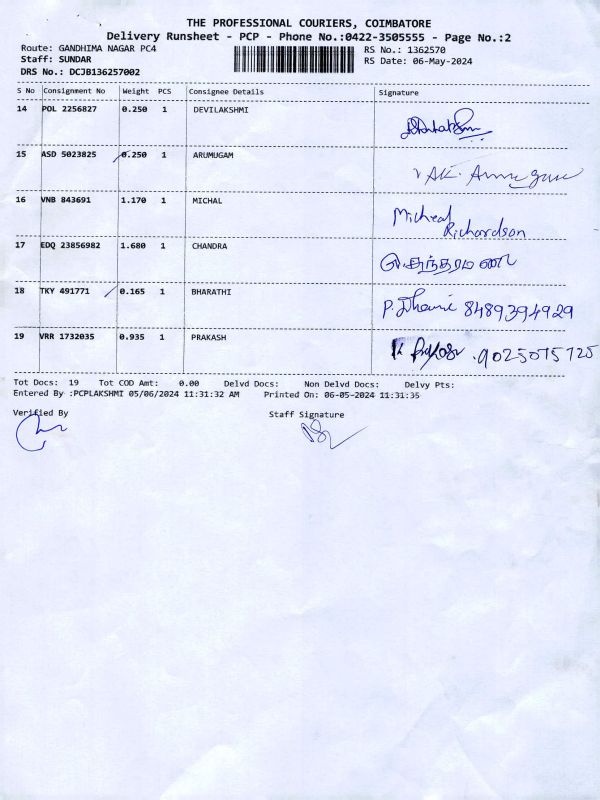 THE PROFESSIONAL COURIERS, COIMBATORE
Delivery Runsheet - PCP - Phone No.:0422-3505555 - Page No.:2
Route: GANDHIMA NAGAR PC4 RS No.: 1362570
Staff: SUNDAR RS Date: 06-May-2024
DRS No.: DCJB136257002
S No Consignment No Weight PCS Consignee Details Signature
14 POL 2256827 0.250 1 DEVILAKSHMI
15 ASD 5023825 0.250 1 ARUMUGAM
16 VNB 843691 1.170 1 MICHAL Micheal
Richardson
17 EDQ 23856982 1.680 1 CHANDRA
18 TKY 491771 0.165 1 BHARATHI P. 8489394929
19 VRR 1732035 0.935 1 PRAKASH 9025075725
Tot Docs: 19 Tot COD Amt: 0.00 Delvd Docs: Non Delvd Docs: Delvy Pts:
Entered By :PCPLAKSHMI 05/06/2024 11:31:32 AM Printed On: 06-05-2024 11:31:35
Verified By Staff Signature